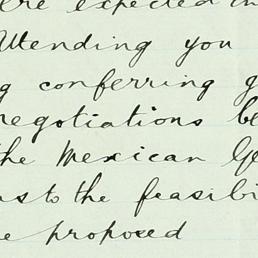 ere expected in
Attending you
g conferring g
negotiations be
the Mexican Ge
as to the feasibi
e proposed